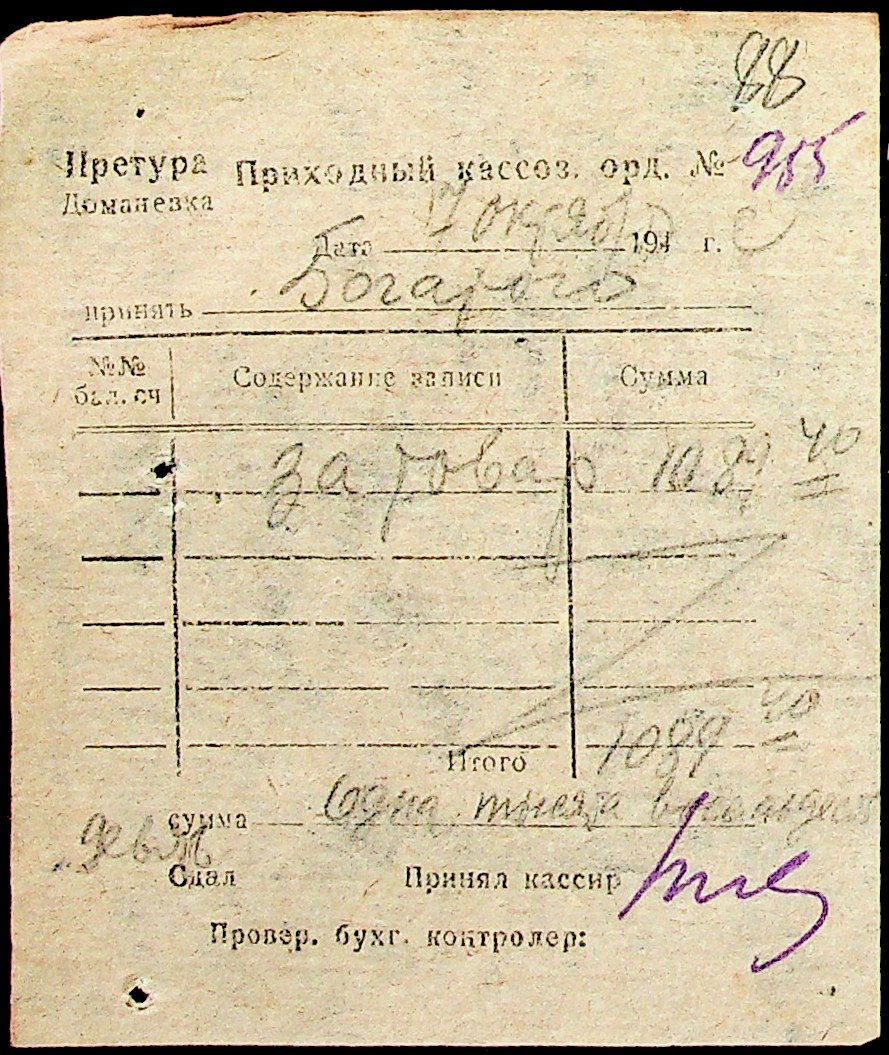 88
Претура Приходный кассоз. орд. № 955
Доманевка
Дата 7 октября 194 г.
принять Богарого
№№ бал. сч Содержание записи Сумма
за товар 1089 40
Итого 1089 40
сумма Одна тысяча восемьдесят
девять
Сдал Принял кассир
Провер. бухг. контролер: